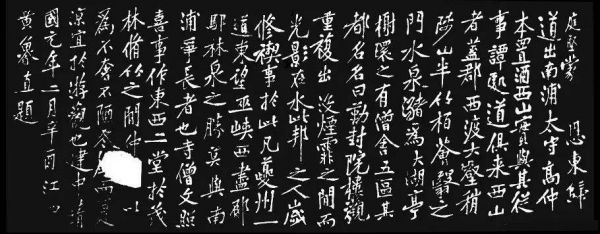 庭堅蒙 恩東歸
道出南浦太守高仲
本置酒西山實與其從
事譚處道俱來西山
者蓋郡西渡大壑稍
陟山半竹柏薈翳之
門水泉瀦為大湖亭
榭環之有僧舍五區其
都名名曰勒封院樓觀
重複出沒煙霏之間而
光景在水此邦之人歲
修禊事於此凡夔州一
道東望巫峽西盡郁
鄢林泉之勝莫與南
浦爭長者也寺僧文照
喜事作東西二堂於茂
林脩竹之間仲 以
為不奢不陋冬 而夏
涼宜於游觀也建中靖
國元年二月辛酉江
黃庭堅題